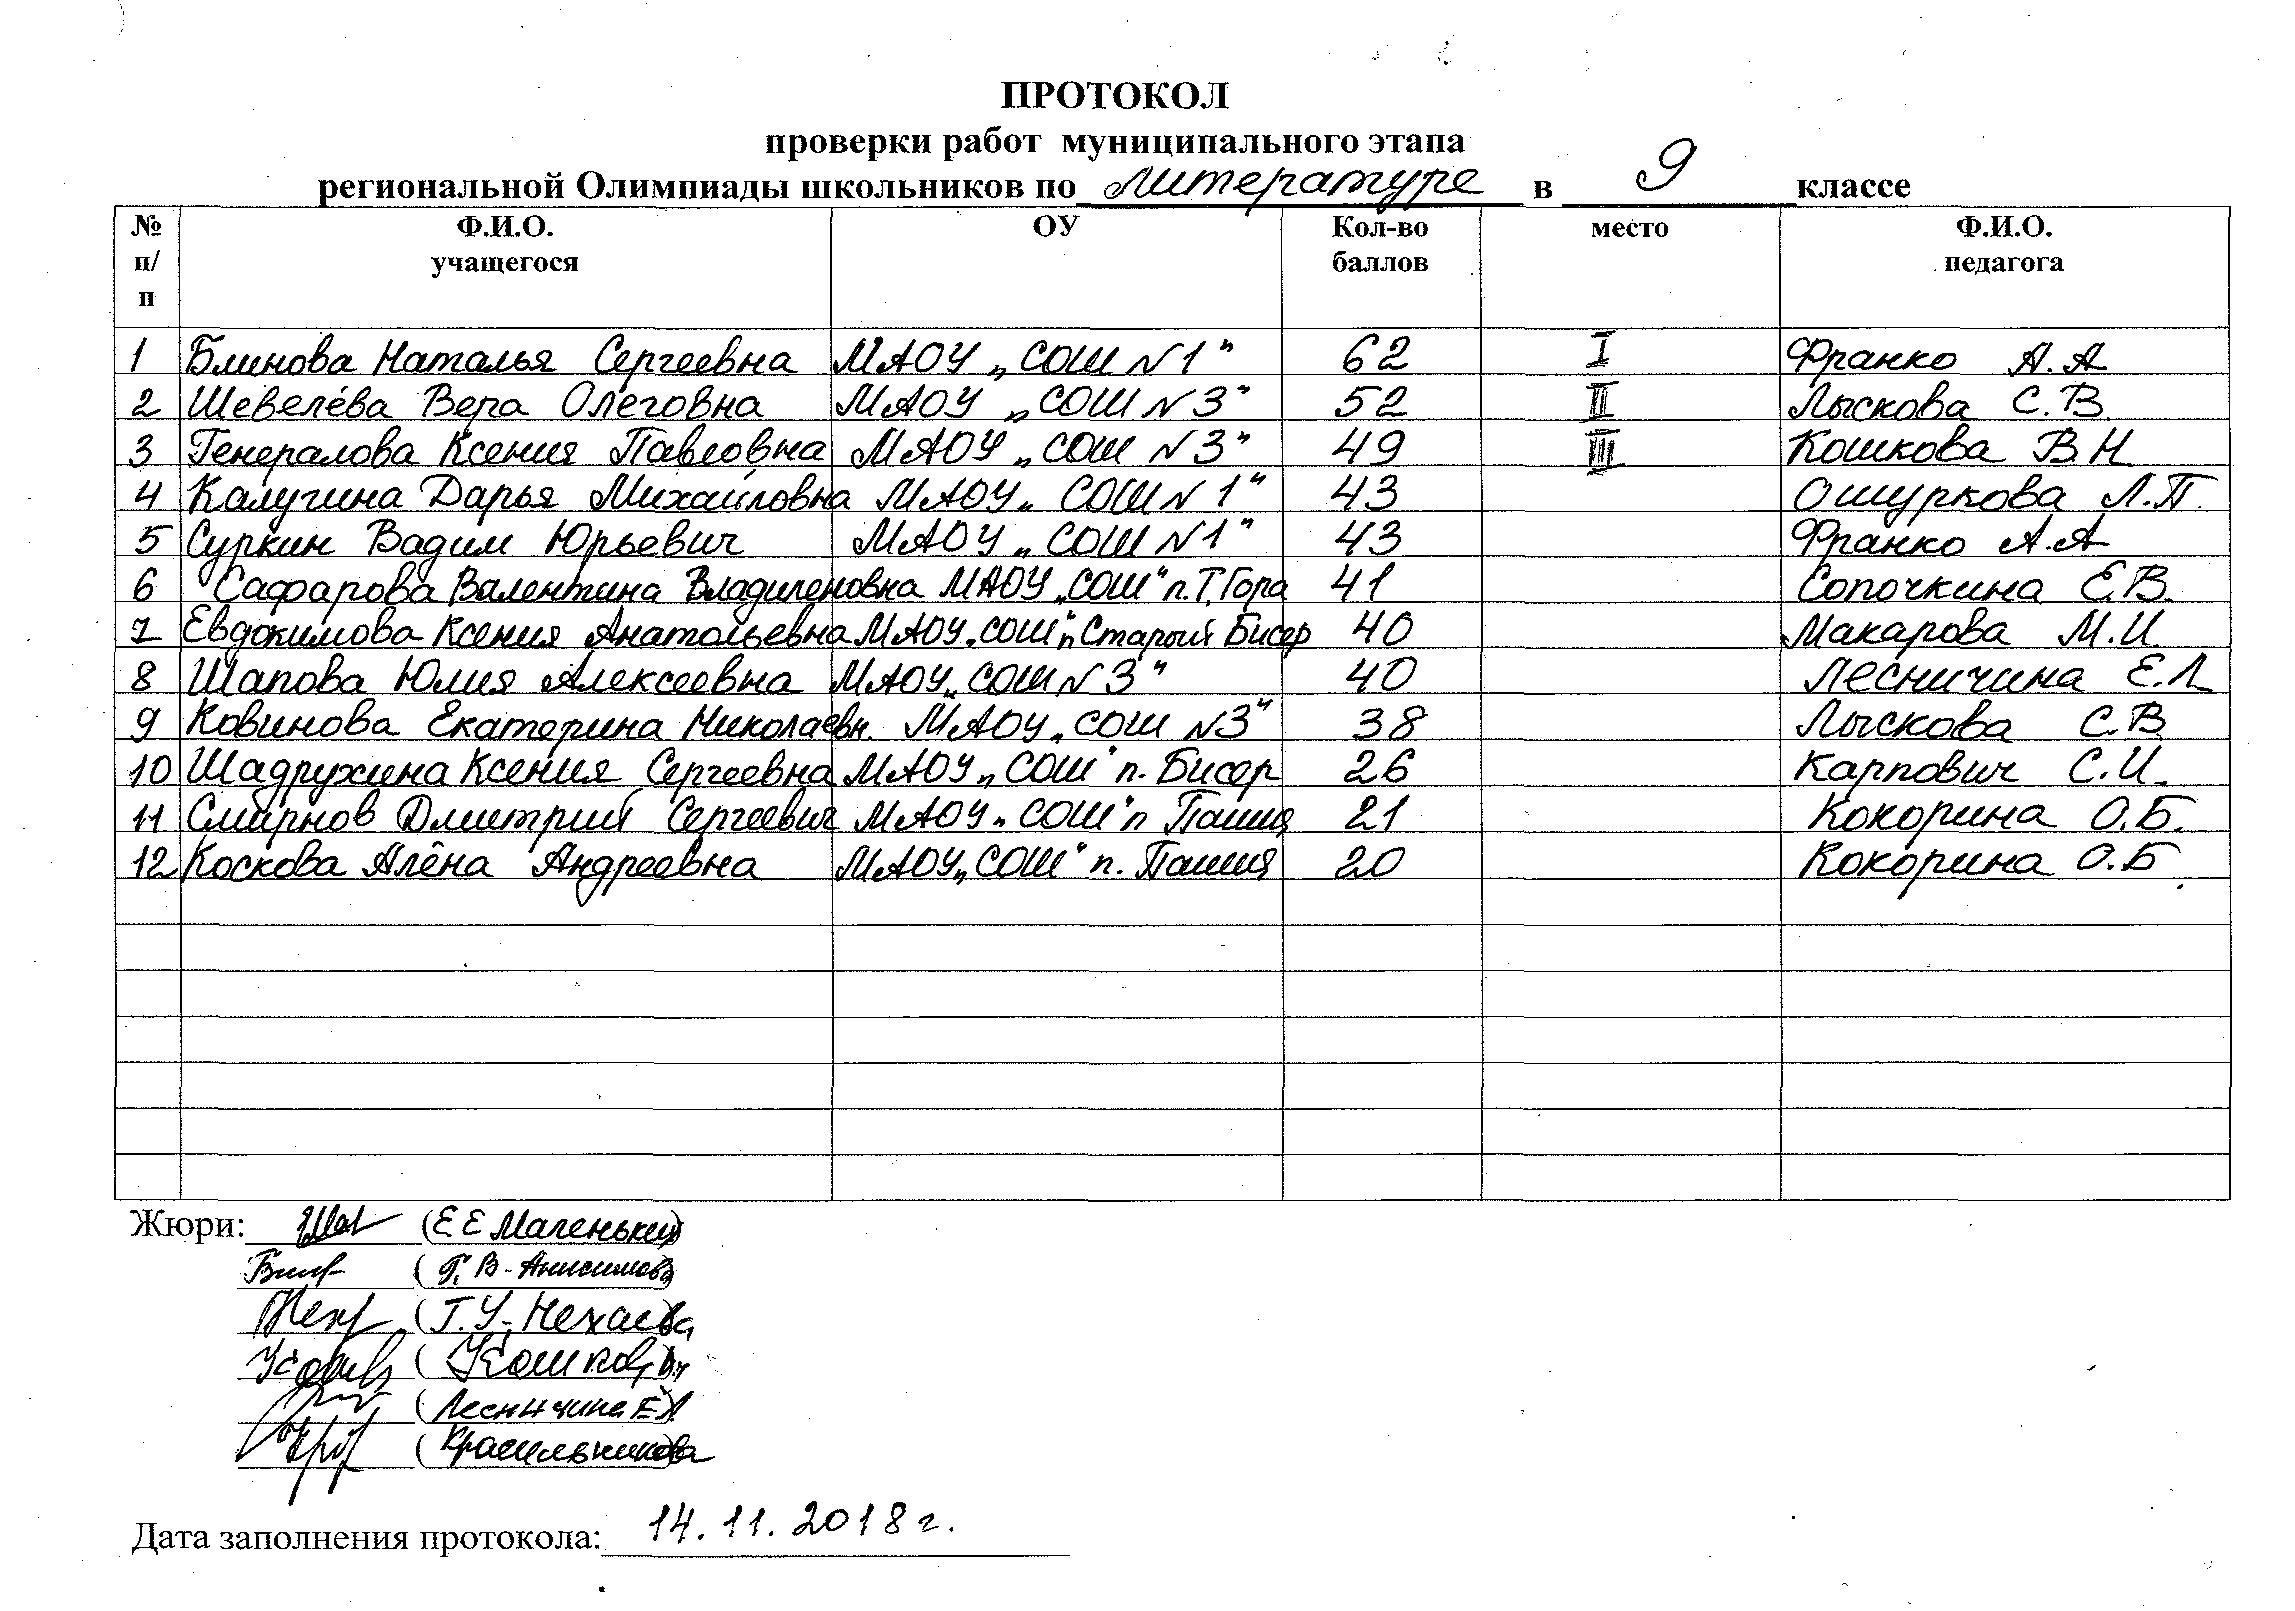 ПРОТОКОЛ
проверки работ муниципального этапа
региональной Олимпиады школьников по литературе в 9 классе
№ п/п Ф.И.О. учащегося ОУ Кол-во баллов место Ф.И.О. педагога
1 Блинова Наталья Сергеевна МАОУ „СОШ N1" 62 I Франко А.А
2 Шевелёва Вера Олеговна МАОУ „СОШ N3" 52 II Лыскова С.В.
3 Генералова Ксения Павловна МАОУ „СОШ N3" 49 III Кошкова В Н
4 Калугина Дарья Михайловна МАОУ „СОШ N1" 43 Ошуркова Л.П.
5 Суркин Вадим Юрьевич МАОУ „СОШ N1" 43 Франко А.А
6 Сафарова Валентина Владиленовна МАОУ „СОШ" п.Т.Гора 41 Сопочкина Е.В.
7 Евдокимова Ксения Анатольевна МАОУ „СОШ" п Старый Бисер 40 Макарова М.И.
8 Шапова Юлия Алексеевна МАОУ „СОШ N3" 40 Лесничина Е.Л
9 Ковинова Екатерина Николаевн. МАОУ „СОШ N3" 38 Лыскова С.В.
10 Шадрухина Ксения Сергеевна МАОУ „СОШ" п. Бисер 26 Карпович С.И.
11 Смирнов Дмитрий Сергеевич МАОУ „СОШ" п Пашия 21 Кокорина О.Б.
12 Коскова Алёна Андреевна МАОУ „СОШ" п. Пашия 20 Кокорина О.Б
Жюри: (Е Е Маленьких)
(Г. В. Анисимова)
(Г.У. Нехаева)
(Кошкова В.Н)
(Лесничина Е.Л)
(Красильникова)
Дата заполнения протокола: 14.11.2018 г.